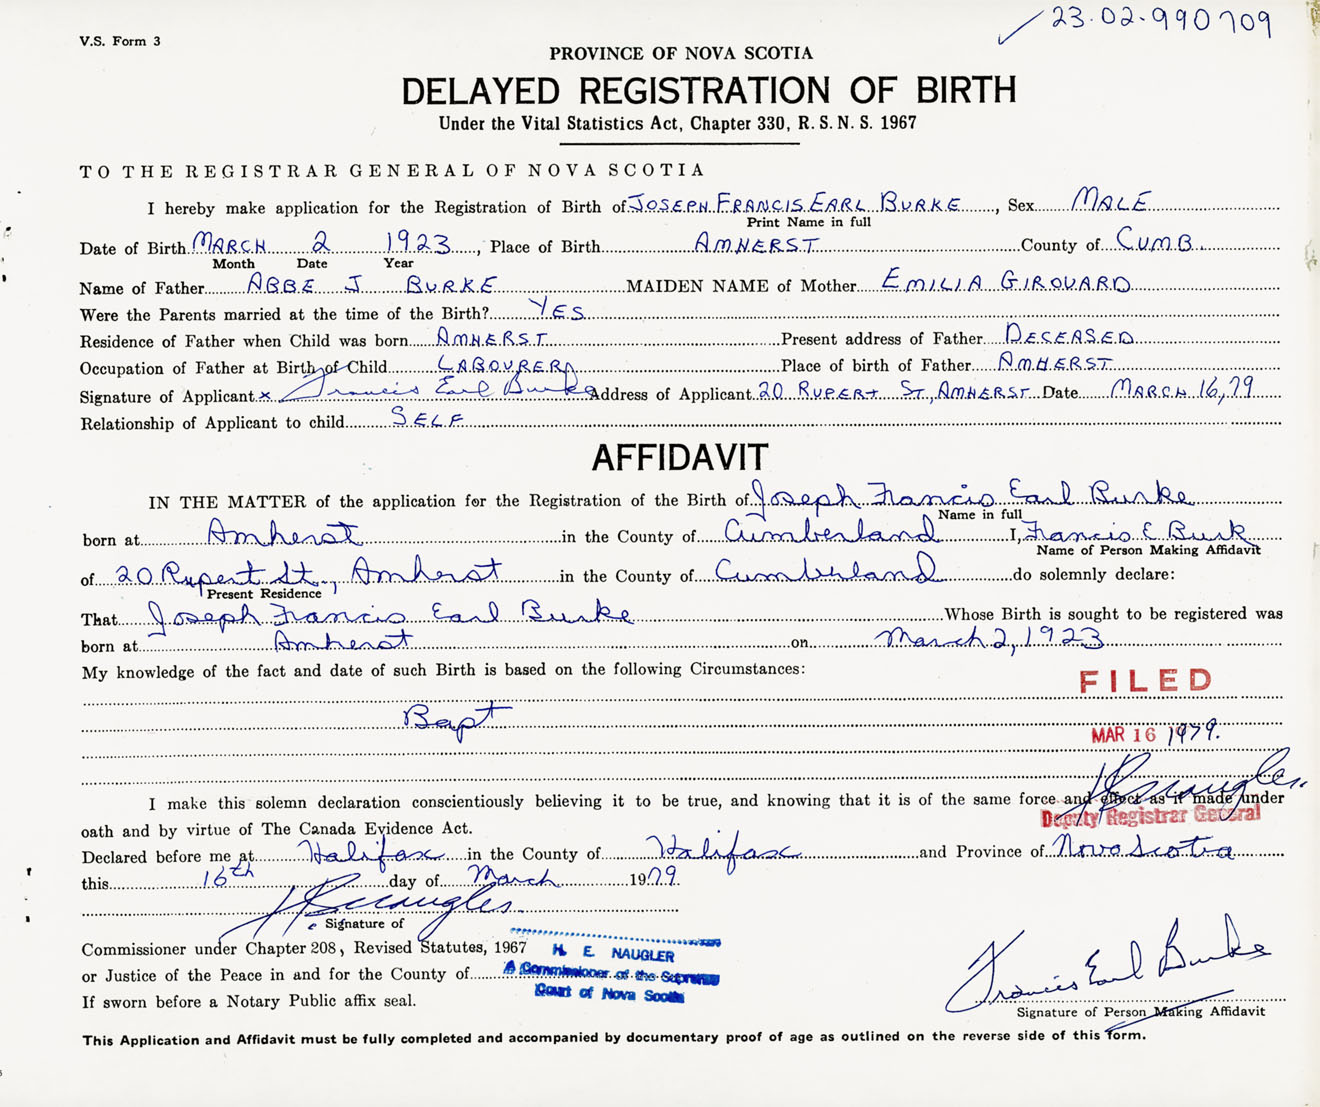 23-02-990709
V.S. Form 3
PROVINCE OF NOVA SCOTIA
DELAYED REGISTRATION OF BIRTH
Under the Vital Statistics Act, Chapter 330, R. S. N. S. 1967
TO THE REGISTRAR GENERAL OF NOVA SCOTIA
I hereby make application for the Registration of Birth of JOSEPH FRANCIS EARL BURKE, Sex MALE
Print Name in full
Date of Birth MARCH 2 1923, Place of Birth AMHERST County of CUMB.
Month Date Year
Name of Father ABBE J BURKE MAIDEN NAME of Mother EMILIA GIROUARD
Were the Parents married at the time of the Birth? YES
Residence of Father when Child was born AMHERST Present address of Father DECEASED
Occupation of Father at Birth of Child LABOURER Place of birth of Father AMHERST
Signature of Applicant x Francis Earl Burke Address of Applicant 20 RUPERT ST., AMHERST Date MARCH 16, 79
Relationship of Applicant to child SELF
AFFIDAVIT
IN THE MATTER of the application for the Registration of the Birth of Joseph Francis Earl Burke
Name in full
born at Amherst in the County of Cumberland I, Francis E Burk
Name of Person Making Affidavit
of 20 Rupert St., Amherst in the County of Cumberland do solemnly declare:
Present Residence
That Joseph Francis Earl Burke Whose Birth is sought to be registered was
born at Amherst on March 2, 1923
My knowledge of the fact and date of such Birth is based on the following Circumstances:
FILED
Bapt
MAR 16 1979.
I make this solemn declaration conscientiously believing it to be true, and knowing that it is of the same force and effect as if made under
Deputy Registrar General
oath and by virtue of The Canada Evidence Act.
Declared before me at Halifax in the County of Halifax and Province of Nova Scotia
this 16th day of March 1979.
Signature of
Commissioner under Chapter 208, Revised Statutes, 1967
H. E. NAUGLER
or Justice of the Peace in and for the County of
A Commissioner of the Supreme
Court of Nova Scotia
If sworn before a Notary Public affix seal.
Francis Earl Burke
Signature of Person Making Affidavit
This Application and Affidavit must be fully completed and accompanied by documentary proof of age as outlined on the reverse side of this form.